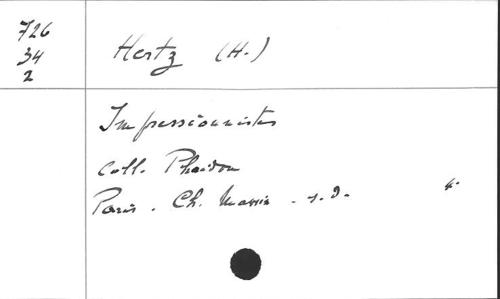 726
34
2
Hertz (H.)
Impressionnistes
Coll. Phaidon
Paris. Ch. Massin. s.d. 4.